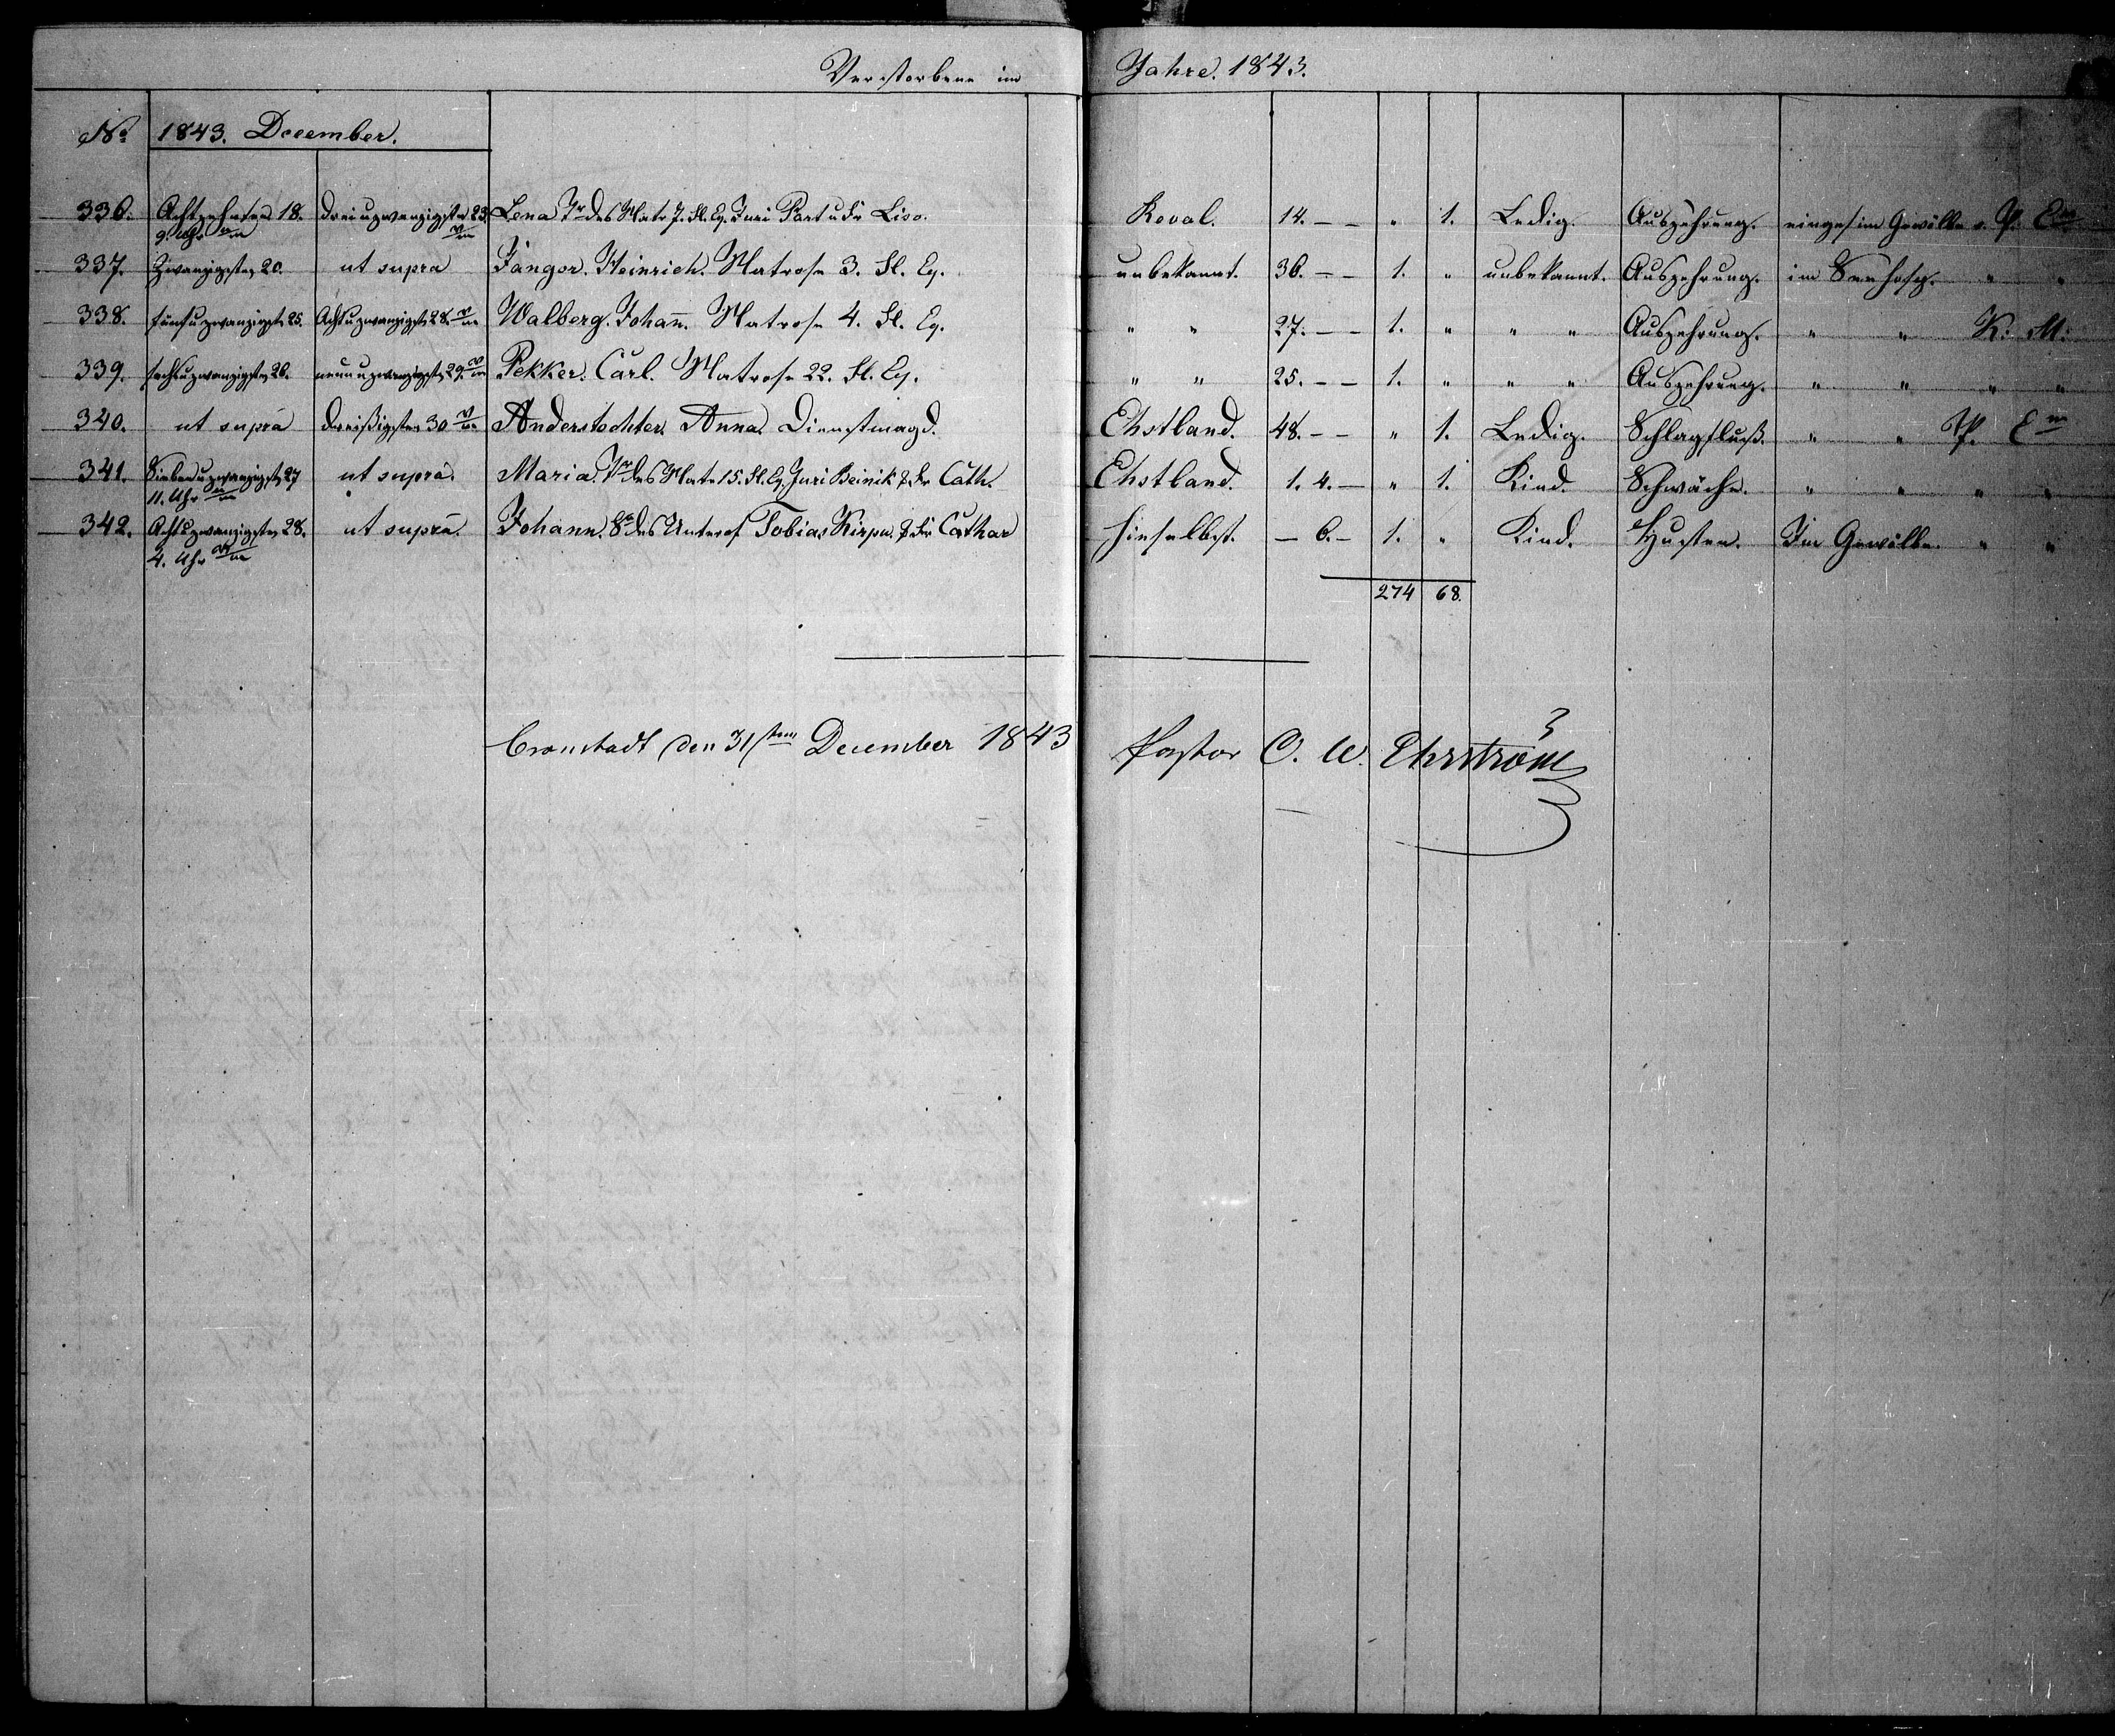 Verstorbene im Jahre. 1843.
No 1843. December.
336. Achtzehnten 18. dreiuzwanzigsten 23. Lena Tr des Matr 7. Fl. Eq. Juri Part u dr Liso. Reval. 14. – – " 1. Ledig. Auszehrung. einges im Gewölbe v. P. Em
9. Uhr
337. Zwanzigsten 20. ut supra Jängor. Heinrich. Matrose 3. Fl. Eq. unbekannt. 36. – – 1. " unbekannt. Auszehrung. im Seehosp. " "
338. fünfuzwanzigst 25. Achtuzwanzigst 28. Walberg. Johañ. Matrose 4. Fl. Eq. " " 27. – – 1. " " " Auszehrung. " " K. M.
339. sechsuzwanzigsten 26. neunuzwanzigst 29. Pekker. Carl. Matrose 22. Fl. Eq. " " 25. – – 1. " " " Auszehrung. " " " "
340. ut supra dreißigsten 30 Anderstochter. Anna. Dienstmagd. Ehstland. 48. – – " 1. Ledig. Schlagfluß. " " P. Em
341. Siebenuzwanzigst 27 ut supra. Maria. Tr des Matr 15. Fl. Eq. Juri Beinik & dr Cath. Ehstland. 1. 4. – " 1. Kind. Schwäche. " " " "
11. Uhr
342. Achtuzwanzigsten 28. ut supra. Johann. S des Unterof Tobias Kirpu. & dr Cathar hieselbst. – 6. – 1. " Kind. Husten. Im Gewölbe. " "
4. Uhr
274 68.
Cronstadt den 31sten December 1843 Pastor C. W. Ehrström